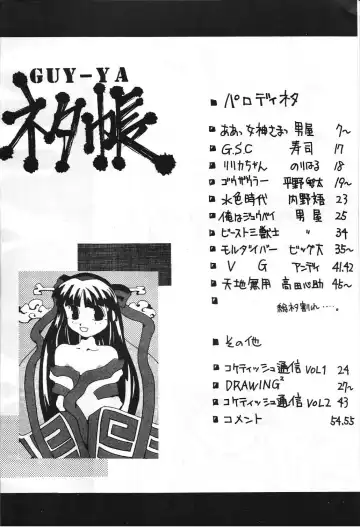 GUY-YA
ネタ帳
パロディネタ
ああっ女神さまっ 男屋 7~
G.S.C 寿司 17
リリカちゃん のりはる 18
ゴウザウラー 平野敏太 19~
水色時代 内野語 23
俺はジュウベイ 男屋 25
ビースト三獣士 〃 34
モルダイバー ビッグ大 35~
V G アンディ 41.42
天地無用 高田心助 45~
その他
コケティッシュ通信 VOL1 24
DRAWING² 27~
コケティッシュ通信 VOL2 43
コメント 54.55